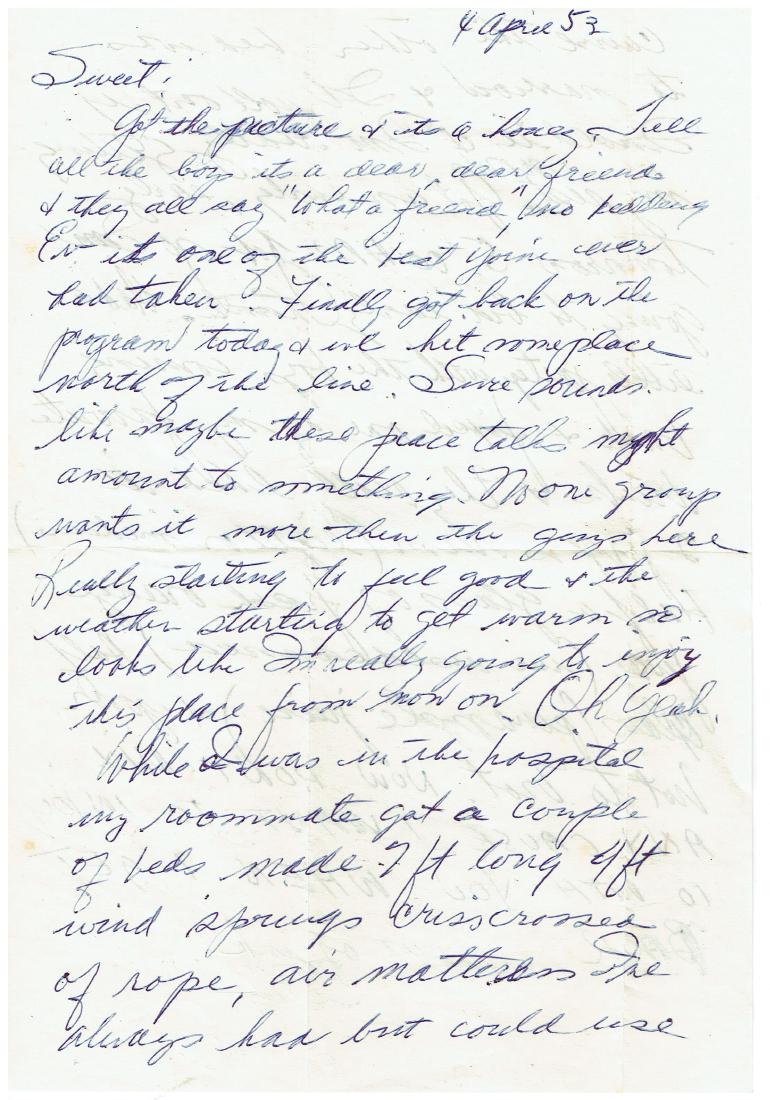 4 April 53
Sweet:
Got the picture & its a honey. Tell
all the boys its a dear, dear friend
& they all say "What a friend", no kidding
Ev its one of the best you've ever
had taken. Finally got back on the
program today & we hit someplace
north of the line. Sure sounds
like maybe these peace talks might
amount to something. No one group
wants it more then the guys here
Really starting to feel good & the
weather starting to get warm so
looks like I'm really going to enjoy
this place from now on. Oh Yeah.
While I was in the hospital
my roommate got a couple
of beds made 7 ft long 4 ft
wind springs crisscrossed
of rope, air mattress I've
always had but could use